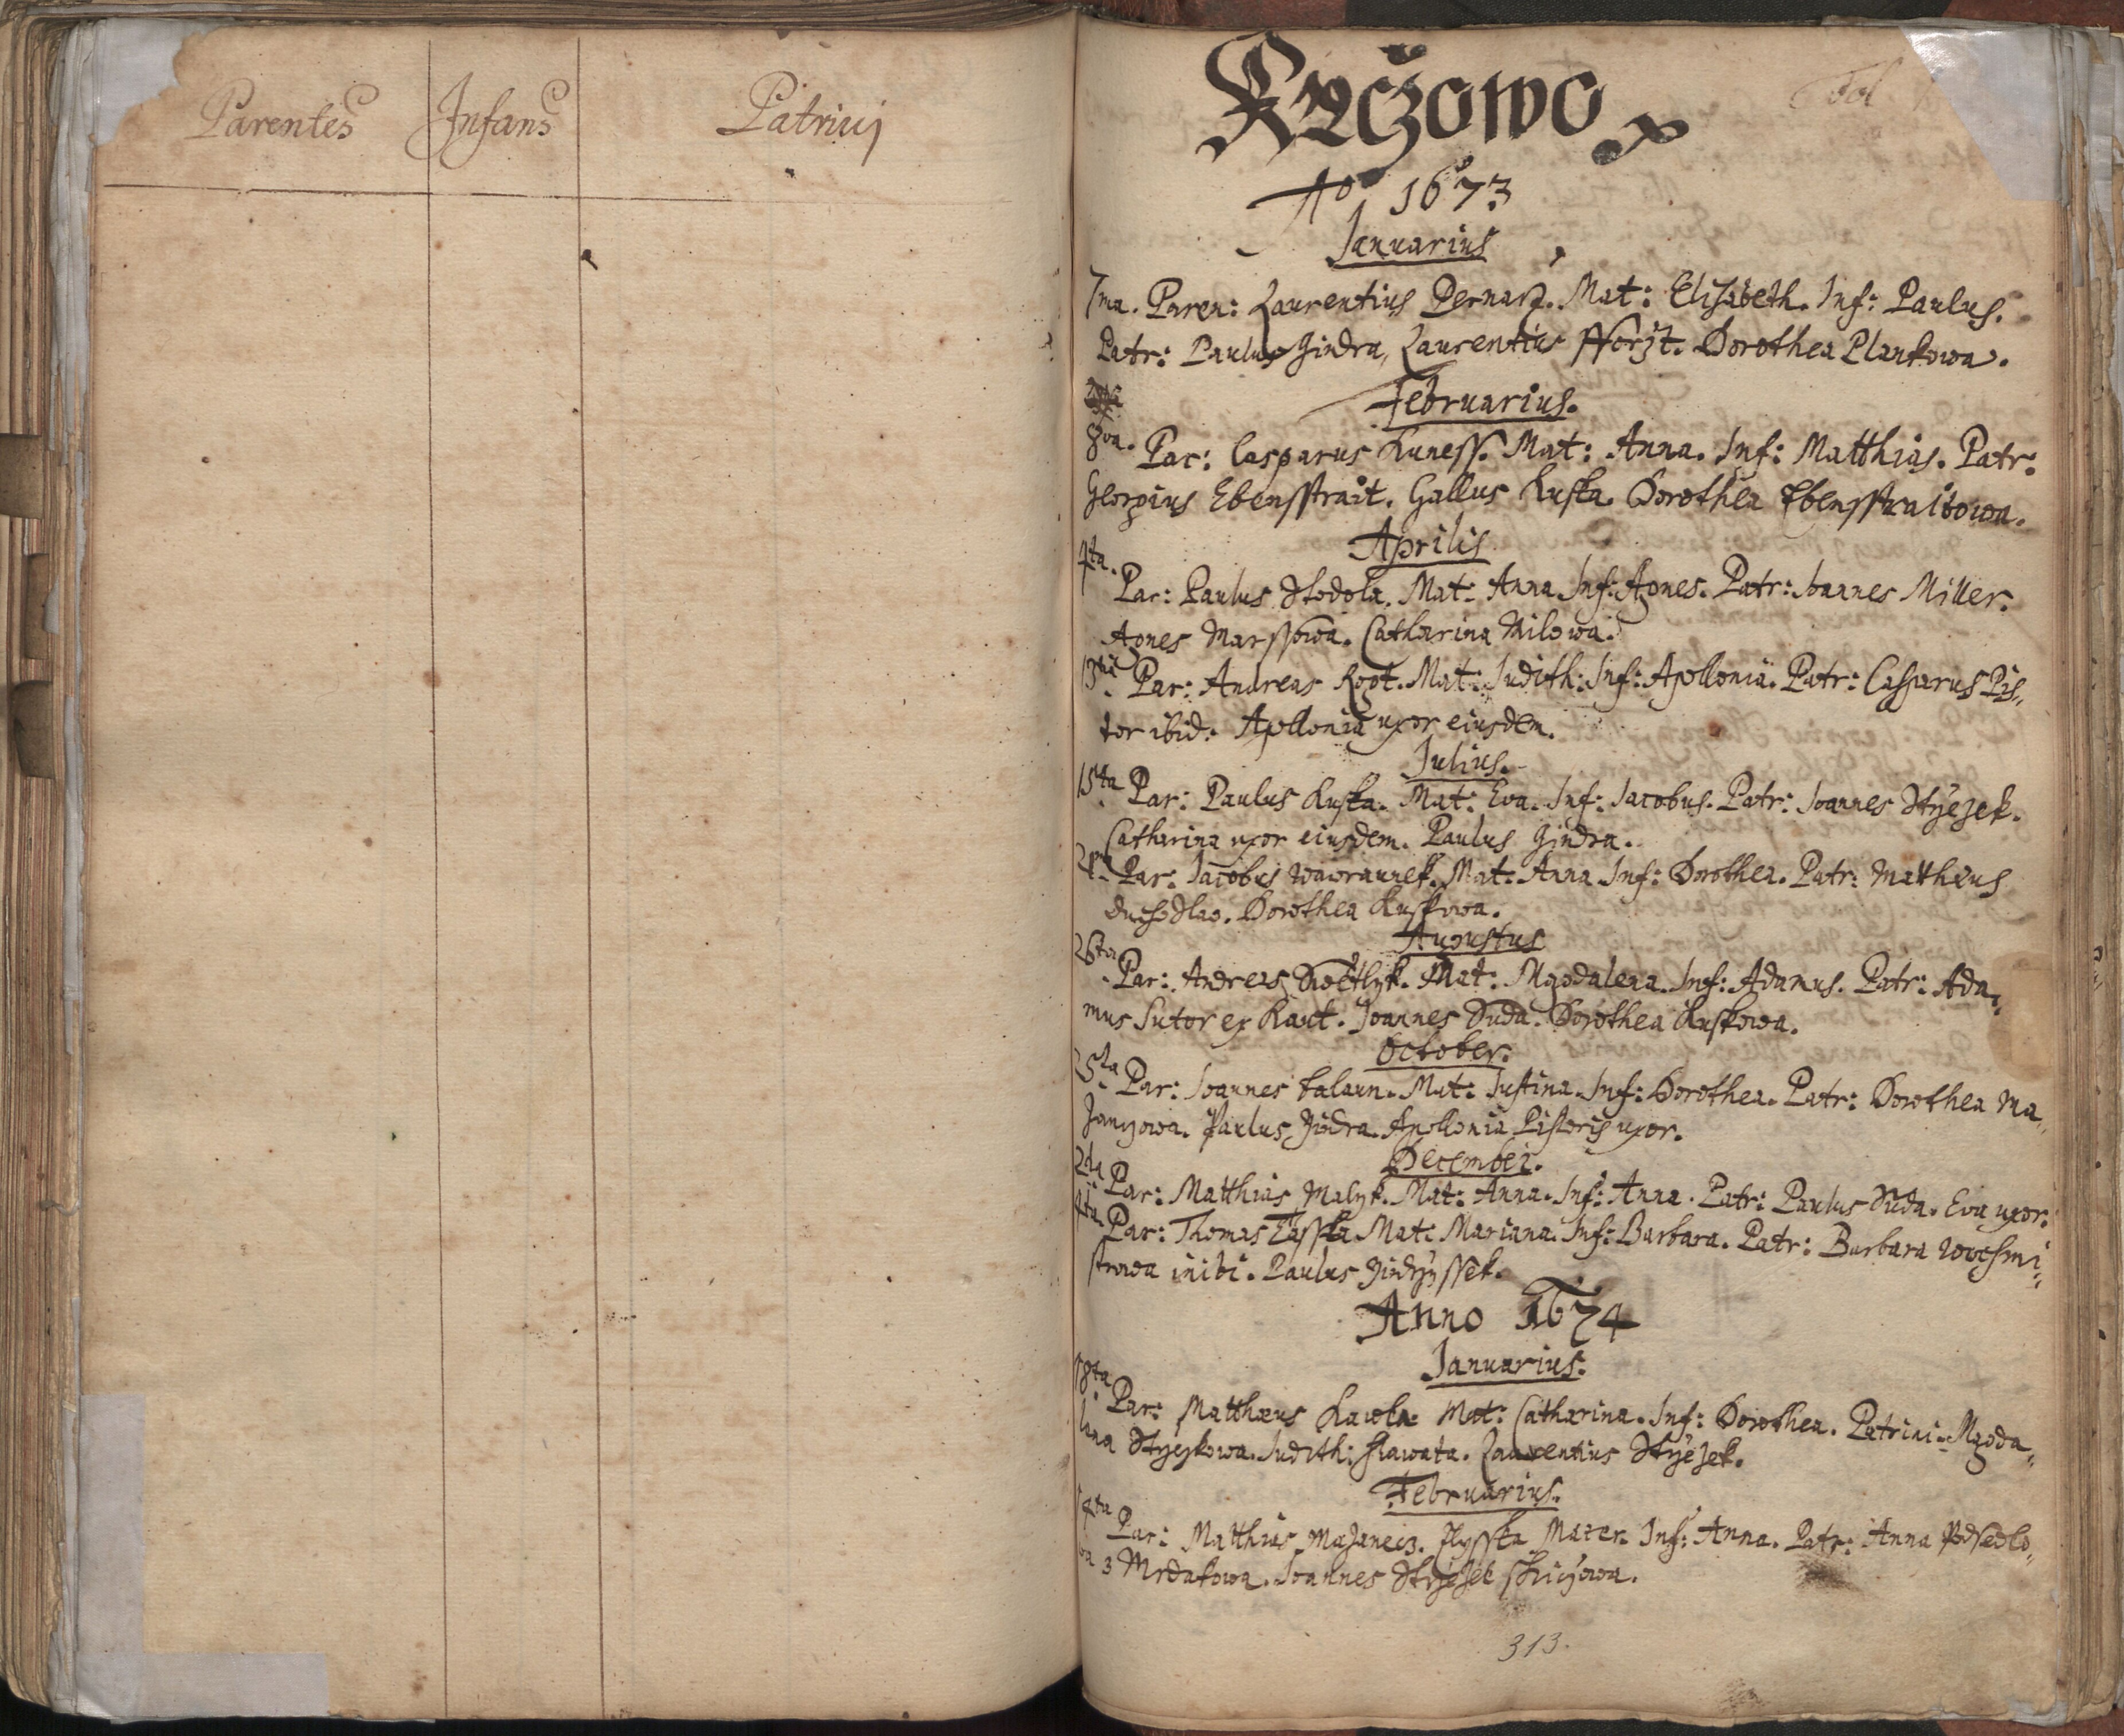 Parentes Infans Patrinj
Fol
Kyčzowo
Ao 1673
Januarius
7ma. Paren: Laurentius Bernas. Mat: Elisabeth. Inf: Paulus.
Patr: Paulus Gindra, Laurentius Dorothea Plankowa.
Februarius.
8va. Par: Casparus Kuness. Mat: Anna. Inf: Matthias. Patr:
Georgius Ebensstrait. Gallus Kuska. Dorothea Ebensstraitowa.
Aprilis
4ta. Par: Paulus Stodola. Mat: Anna Inf: Agnes. Patr: Joannes Miller.
Agnes Marssowa. Catharina Milowa.
13tia Par: Andreas Rozt. Mat: Judith: Inf: Apollonia. Patr: Casparus Pis„
tor ibid: Apollonia uxor eiusdem.
Julius.
15ta Par: Paulus Kuska. Mat: Eva. Inf: Jacobus. Patr: Joannes Stržejek.
Catharina uxor eiusdem. Paulus Gindra.
Par: Jacobus Wawraunek. Mat: Anna Inf: Dorothea. Patr: Matthæus
Dorothea Kuskowa.
Augustus
26ta. Par: Andreas Swětlyk. Mat: Magdalena. Inf: Adamus. Patr: Ada„
mus Sutor ex Kaut. Joannes Duda. Dorothea Kuskowa.
October.
5ta Par: Joannes Kalaun. Mat: Justina. Inf: Dorothea. Patr: Dorothea Ma„
Paulus Jindra. Apollonia Pistoris uxor.
December.
2da Par: Matthias Malyk. Mat: Anna. Inf: Anna. Patr: Paulus Duda. Eva uxor.
4ta. Par: Thomas Tasska Mat: Mariana. Inf: Barbara. Patr: Barbara Wocsmi„
strowa inibi. Paulus Jindrzyssek.
Anno 1674
Januarius.
18ta Par: Matthæus Kawka Mat: Catharina. Inf: Dorothea. Patrini: Magda„
lena Stržejkowa. Judith: Hlawata. Laurentius Stržejek.
Februarius.
14ta Par: Matthias Majanecz. Elysska Mater. Inf: Anna. Patr: Anna Podsedlo„
wa z Mrdakowa. Joannes Stržejek
313.